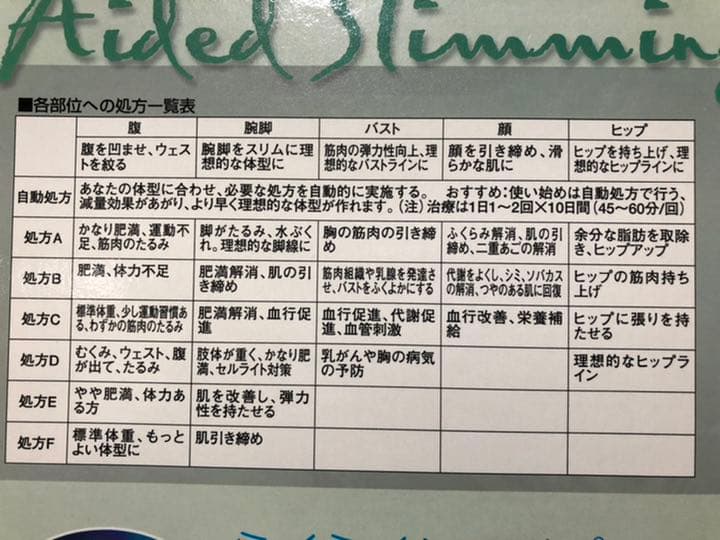 Aided Slimming
■各部位への処方一覧表
腹 腕脚 バスト 顔 ヒップ
腹を凹ませ、ウェストを絞る 腕脚をスリムに理想的な体型に 筋肉の弾力性向上、理想的なバストラインに 顔を引き締め、滑らかな肌に ヒップを持ち上げ、理想的なヒップラインに
自動処方 あなたの体型に合わせ、必要な処方を自動的に実施する。 おすすめ:使い始めは自動処方で行う、
減量効果があがり、より早く理想的な体型が作れます。(注)治療は1日1〜2回×10日間(45〜60分/回)
処方A かなり肥満、運動不足、筋肉のたるみ 脚がたるみ、水ぶくれ。理想的な脚線に 胸の筋肉の引き締め ふくらみ解消、肌の引き締め、二重あごの解消 余分な脂肪を取除き、ヒップアップ
処方B 肥満、体力不足 肥満解消、肌の引き締め 筋肉組織や乳腺を発達させ、バストをふくよかにする 代謝をよくし、シミ、ソバカスの解消、つやのある肌に回復 ヒップの筋肉持ち上げ
処方C 標準体重、少し運動習慣ある、わずかの筋肉のたるみ 肥満解消、血行促進 血行促進、代謝促進、血管刺激 血行改善、栄養補給 ヒップに張りを持たせる
処方D むくみ、ウェスト、腹が出て、たるみ 肢体が重く、かなり肥満、セルライト対策 乳がんや胸の病気の予防 理想的なヒップライン
処方E やや肥満、体力ある方 肌を改善し、弾力性を持たせる
処方F 標準体重、もっとよい体型に 肌引き締め